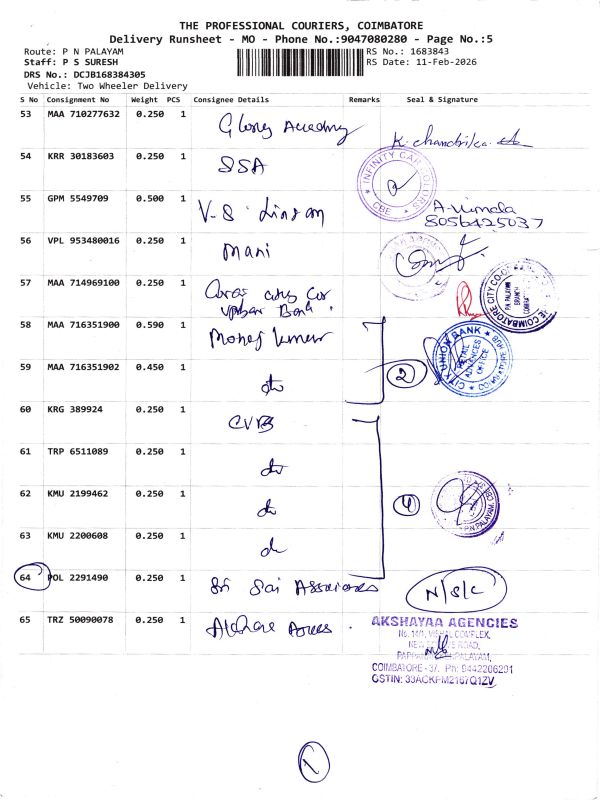 THE PROFESSIONAL COURIERS, COIMBATORE
Delivery Runsheet - MO - Phone No.:9047080280 - Page No.:5
Route: P N PALAYAM
RS No.: 1683843
Staff: P S SURESH
RS Date: 11-Feb-2026
DRS No.: DCJB168384305
Vehicle: Two Wheeler Delivery
S No Consignment No Weight PCS Consignee Details Remarks Seal & Signature
53 MAA 710277632 0.250 1 Glory Academy K. chandrika
54 KRR 30183603 0.250 1 SSA
INFINITY CAR COLORS
CBE
55 GPM 5549709 0.500 1 V-S A-Vimala
8056425037
56 VPL 953480016 0.250 1 Mani
57 MAA 714969100 0.250 1 city
THE COIMBATORE CITY CO-OP
P.N PALAYAM
BRANCH
58 MAA 716351900 0.590 1 Kumar
CITY UNION BANK
RETAIL
ADVANCES
OFFICE
59 MAA 716351902 0.450 1 2
60 KRG 389924 0.250 1 CVB
61 TRP 6511089 0.250 1
62 KMU 2199462 0.250 1 4
P.N PALAYAM
63 KMU 2200608 0.250 1
64 POL 2291490 0.250 1 Sri Sai N/S/C
65 TRZ 50090078 0.250 1
AKSHAYAA AGENCIES
COMPLEX,
ROAD,
COIMBATORE - 37. Ph: 9442206291
GSTIN: 33ACKFM2167Q1ZV
1